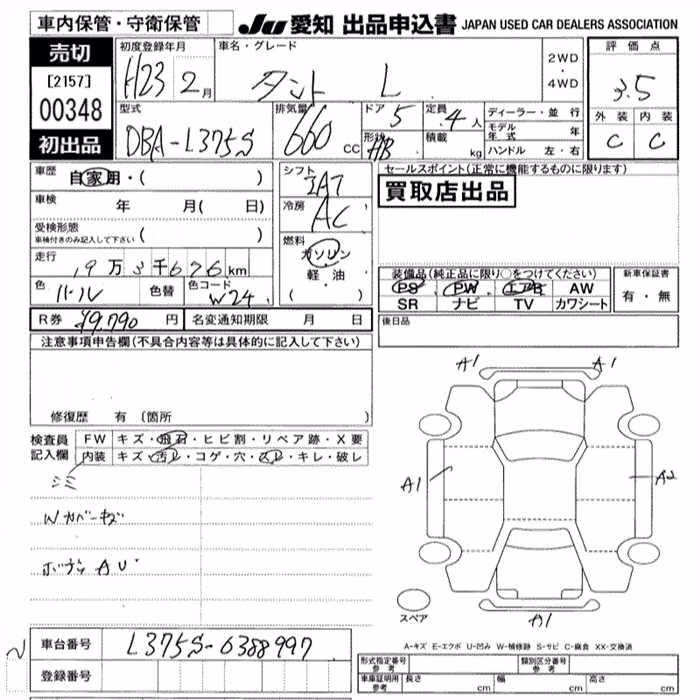 車内保管・守衛保管
JU 愛知 出品申込書 JAPAN USED CAR DEALERS ASSOCIATION
売切
[2157]
00348
初出品
初度登録年月
H23 2月
車名・グレード
タント L
2WD
・
4WD
評価点
3.5
外装 内装
C C
型式
DBA-L375S
排気量
660 CC
ドア
5
形状
HB
定員
4人
積載
kg
ディーラー・並行
モデル年式 年
ハンドル 左・右
車歴
自家用・( )
車検 年 月( 日)
受検形態
車検付きのみ記入して下さい ( )
走行
19万3千676km
色
パール
色替
色コード
W24
シフト
IAT
冷房
AC
燃料
ガソリン
軽油
( )
セールスポイント(正常に機能するものに限ります)
買取店出品
装備品(純正品に限り○をつけてください)
PS PW エアB AW
SR ナビ TV カワシート
新車保証書
有・無
R券 ¥9,790 円
名変通知期限 月 日
後日品
注意事項申告欄(不具合内容等は具体的に記入して下さい)
修復歴 有 (箇所 )
検査員
記入欄
FW キズ・飛石・ヒビ割・リペア跡・X要
内装 キズ・汚レ・コゲ・穴・スレ・キレ・破レ
シミ
Wカバーキズ
ボデーAU
A1 A1
A1 A2
A1
スペア
A-キズ E-エクボ U-凹み W-補修跡 S-サビ C-腐食 XX-交換済
車台番号 L375S-6388997
登録番号
形式指定番号
参考
類別区分番号
参考
車庫証明用
参考
長さ cm 幅 cm 高さ cm